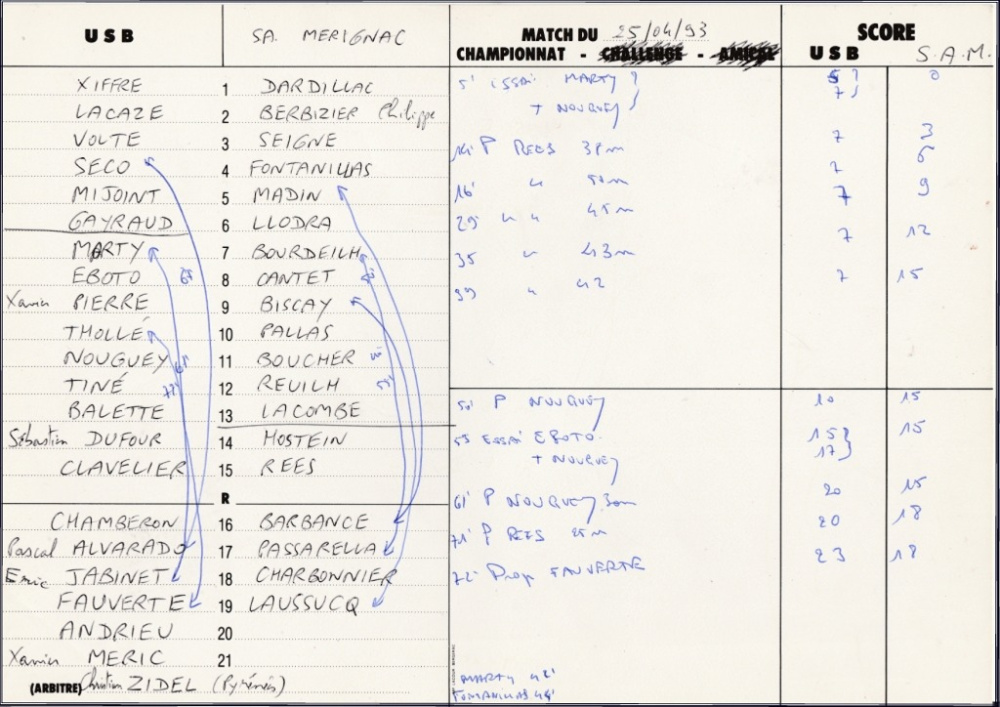 USB SA. MERIGNAC MATCH DU 25/04/93 SCORE
CHAMPIONNAT - CHALLENGE - AMICAL USB S.A.M.
XIFFRE 1 DARDILLAC 5' ESSAI MARTY 5 0
LACAZE 2 BERBIZIER Philippe + NOUGUEY 7
VOLTE 3 SEIGNE 14 P REES 38m 7 3
SECO 4 FONTANILLAS 16' " 50m 7 6
MIJOINT 5 MADIN 29' " " 45m 7 9
GAYRAUD 6 LLODRA
MARTY 7 BOURDEILH 35 " 43m 7 12
EBOTO 8 CANTET 39 " 42 7 15
Xavier PIERRE 9 BISCAY
THOLLÉ 10 PALLAS
NOUGUEY 11 BOUCHER
TINÉ 12 REUILH
BALETTE 13 LACOMBE 50' P NOUGUEY 10 15
Sébastien DUFOUR 14 HOSTEIN 53 ESSAI EBOTO 15 15
CLAVELIER 15 REES + NOUGUEY 17
R
CHAMBERON 16 BARBANCE 61' P NOUGUEY 30m 20 15
Pascal ALVARADO 17 PASSARELLA 71' P REES 25m 20 18
Eric JABINET 18 CHARBONNIER 72' Drop FAUVERTE 23 18
FAUVERTE 19 LAUSSUCQ
ANDRIEU 20
Xavier MERIC 21
(ARBITRE) Christian ZIDEL (Pyrénées)
MARTY 42'
FONTANILLAS 44'